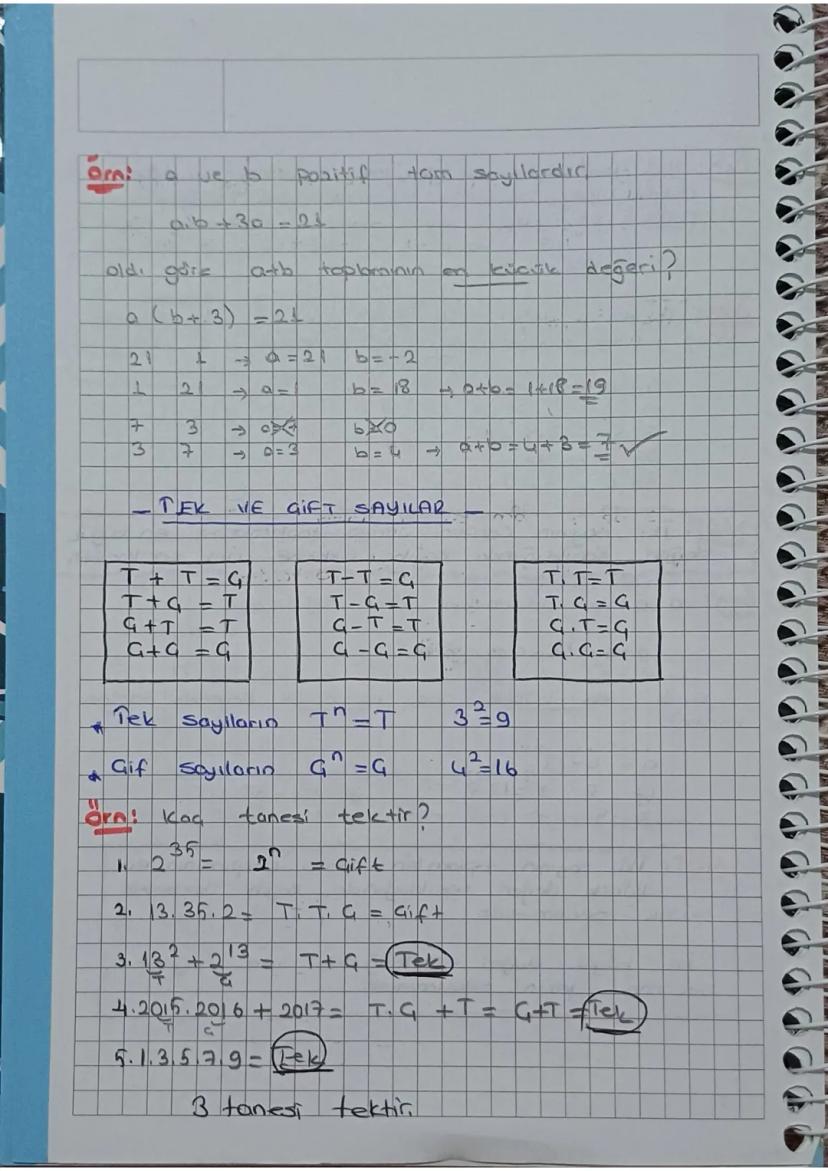 Örn: a ve b pozitif tam sayılardır
a.b + 3a = 21
old. göre a+b toplamının en küçük değeri?
a (b+3) = 21
21 1 → a = 21 b = -2
1 21 → a = 1 b = 18 → a+b = 1+18 = 19
7 3 → a=7 b=0
3 7 → a=3 b=4 → a+b = 4+3 = 7 ✓
- TEK VE ÇİFT SAYILAR -
T + T = Ç
T + Ç = T
Ç + T = T
Ç + Ç = Ç
T - T = Ç
T - Ç = T
Ç - T = T
Ç - Ç = Ç
T. T = T
T. Ç = Ç
Ç. T = Ç
Ç. Ç = Ç
* Tek sayıların Tⁿ = T 3² = 9
* Çif sayıların Çⁿ = Ç 4² = 16
Örn: Kaç tanesi tektir?
1. 2³⁵ = 2ⁿ = Çift
2. 13.35.2 = T. T. Ç = Çift
3. 13² + 2¹³ = T + Ç = Tek
T Ç
4. 2015.2016 + 2017 = T. Ç + T = Ç+T = Tek
T Ç
5. 1.3.5.7.9 = Tek
3 tanesi tektir.